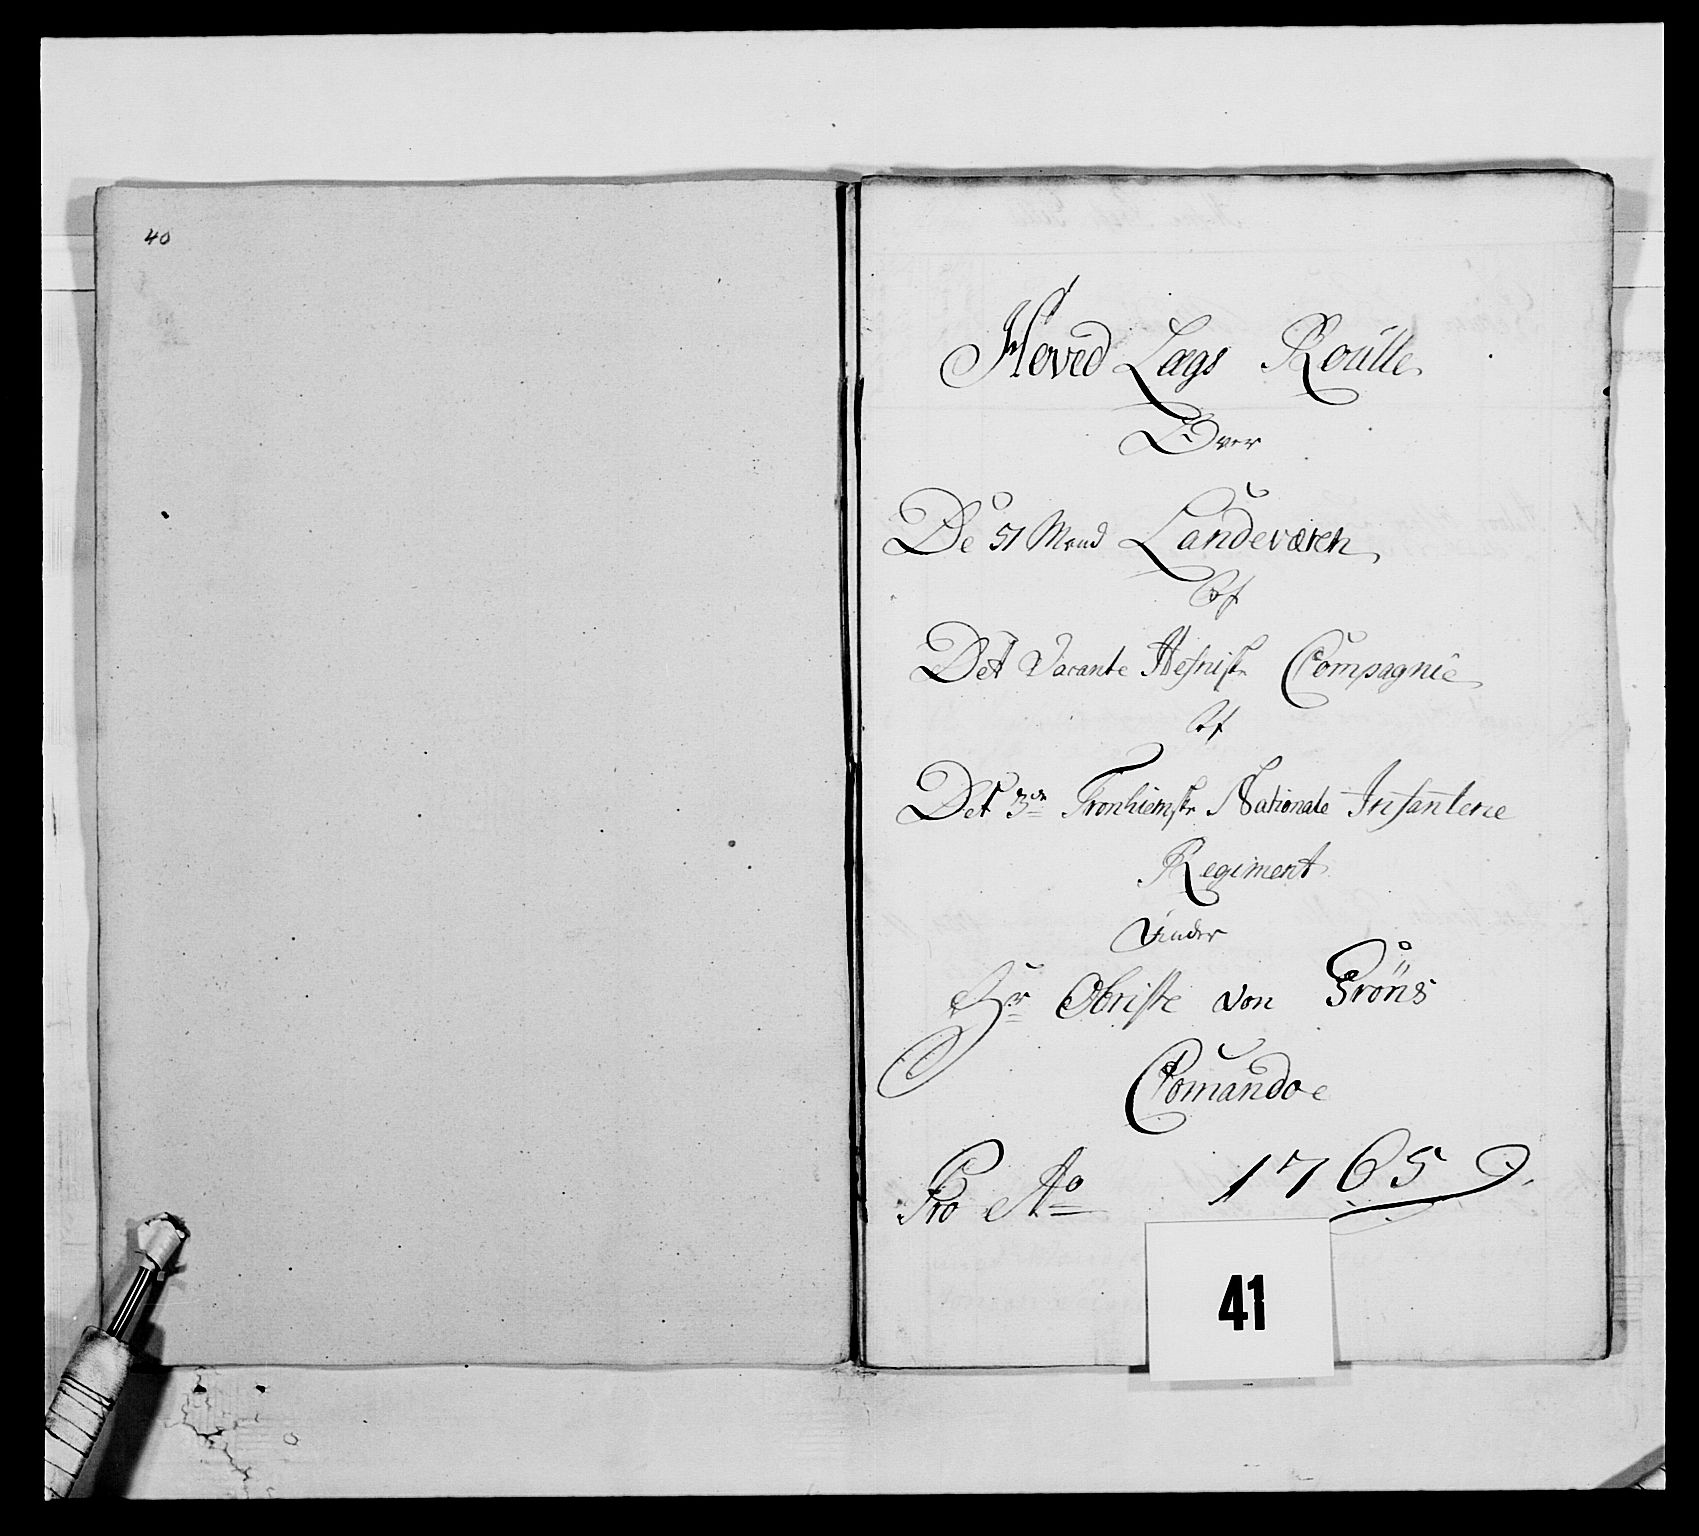 40
Hoved Lægs Roulle
Over
De 51 Mand Landeværen
Af
Det Vacante Hefniske Compagnie
Af
Det 3de Tronhiemske Nationale Infanterie
Regiment
Under
Hr Obriste von Gröns
Comandoe
Pro Ao 1765
41